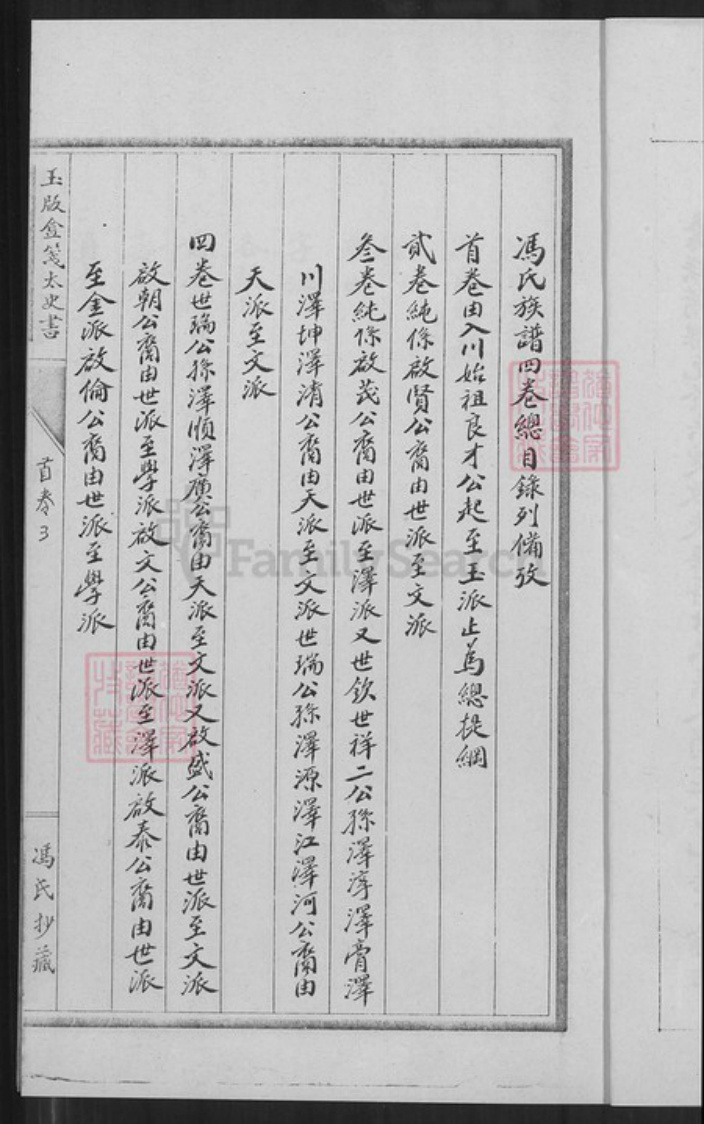 馮氏族譜四卷總目錄列備攷
首卷由入川始祖良才公起至玉派止為總提綱
貳卷純係啟賢公裔由世派至文派
叁卷純係啟茂公裔由世派至澤派又世欽世祥二公孫澤淳澤膏澤
川澤坤澤清公裔由天派至文派世瑞公孫澤源澤江澤河公裔由
天派至文派
四卷世瑞公孫澤順澤廣公裔由天派至文派又啟盛公裔由世派至文派
啟朝公裔由世派至學派啟文公裔由世派至澤派啟泰公裔由世派
至金派啟倫公裔由世派至學派
玉版盦箋太史書
首卷 3
馮氏抄藏
FamilySearch